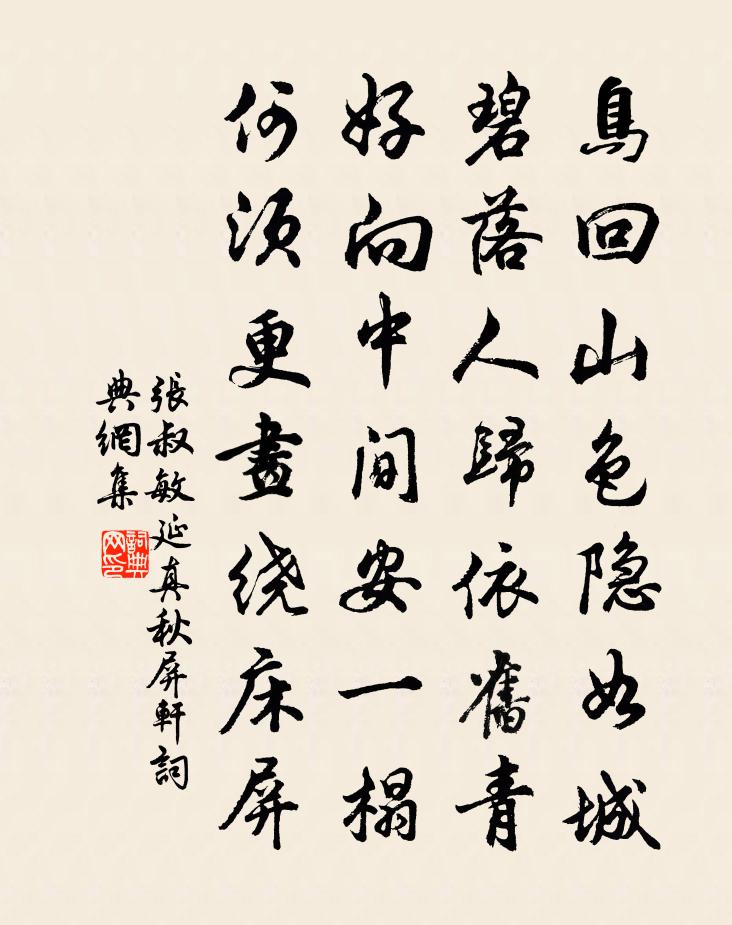 鳥回山色隐如城
碧落人歸依舊青
好向中间安一榻
何須更畫绕床屏
張叔敏延真秋屏軒詞
典網集
詞典網印